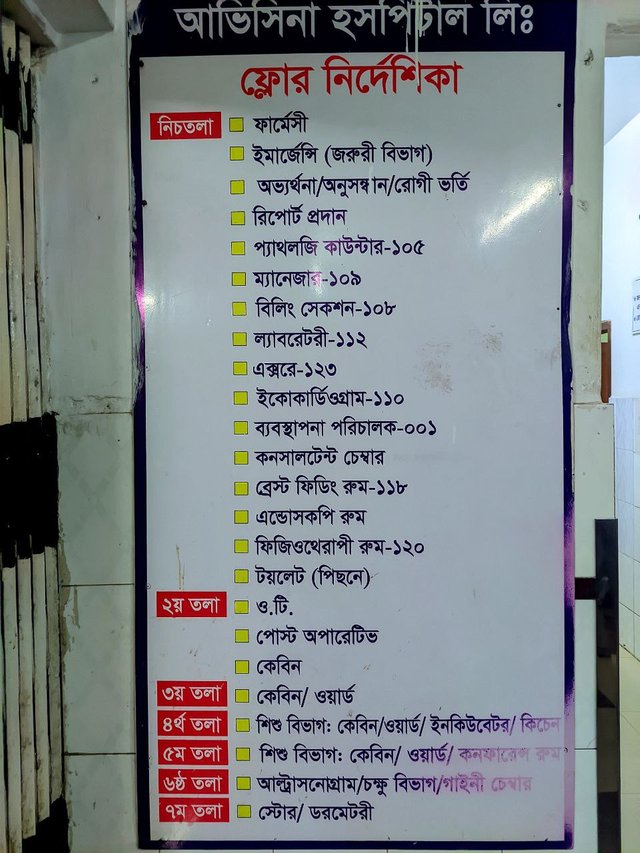 আভিসিনা হসপিটাল লিঃ
ফ্লোর নির্দেশিকা
নিচতলা ফার্মেসী
ইমার্জেন্সি (জরুরী বিভাগ)
অভ্যর্থনা/অনুসন্ধান/রোগী ভর্তি
রিপোর্ট প্রদান
প্যাথলজি কাউন্টার-১০৫
ম্যানেজার-১০৯
বিলিং সেকশন-১০৮
ল্যাবরেটরী-১১২
এক্সরে-১২৩
ইকোকার্ডিওগ্রাম-১১০
ব্যবস্থাপনা পরিচালক-০০১
কনসালটেন্ট চেম্বার
ব্রেস্ট ফিডিং রুম-১১৮
এন্ডোসকপি রুম
ফিজিওথেরাপী রুম-১২০
টয়লেট (পিছনে)
২য় তলা ও.টি.
পোস্ট অপারেটিভ
কেবিন
৩য় তলা কেবিন/ ওয়ার্ড
৪র্থ তলা শিশু বিভাগ: কেবিন/ওয়ার্ড/ ইনকিউবেটর/ কিচেন
৫ম তলা শিশু বিভাগ: কেবিন/ ওয়ার্ড/ কনফারেন্স রুম
৬ষ্ঠ তলা আল্ট্রাসনোগ্রাম/চক্ষু বিভাগ/গাইনী চেম্বার
৭ম তলা স্টোর/ ডরমেটরী